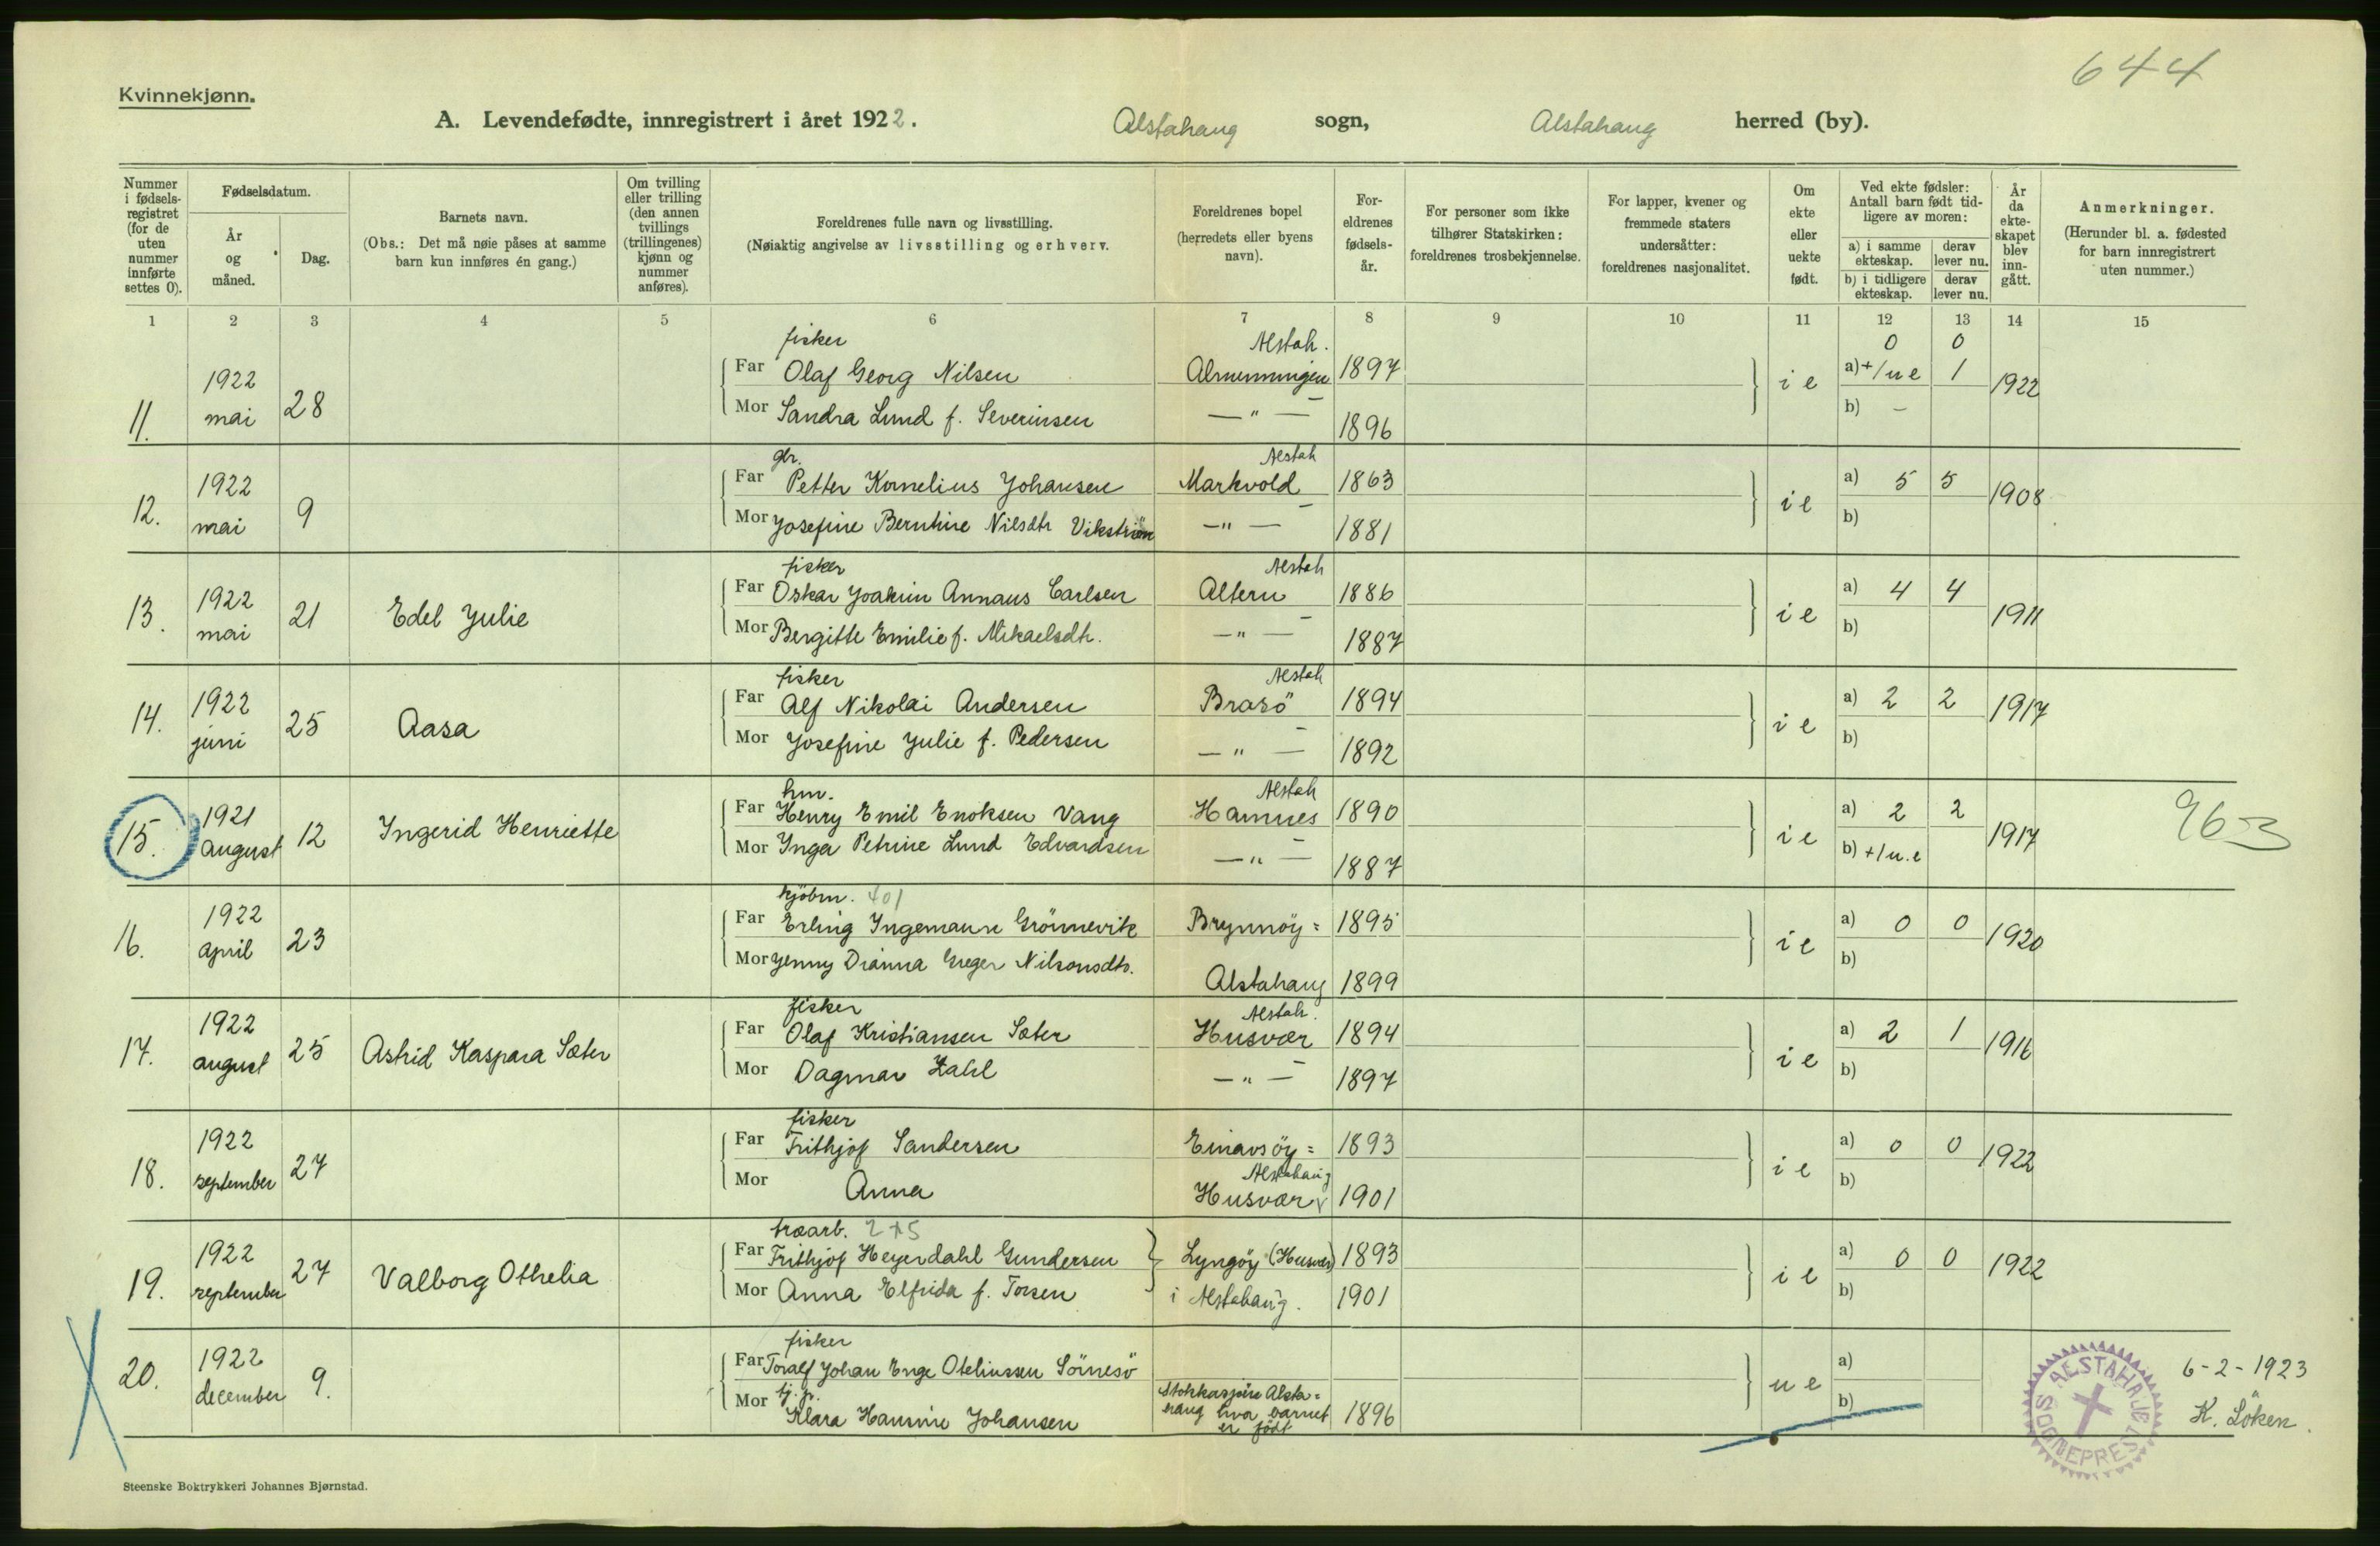 644
Kvinnekjønn.
A. Levendefødte, innregistrert i året 1922. Alstahaug sogn, Alstahaug herred (by).
Nummer i fødsels-registret (for de uten nummer innførte settes 0).
Fødselsdatum.
År og måned.
Dag.
Barnets navn.
(Obs.: Det må nøie påses at samme barn kun innføres én gang.)
Om tvilling eller trilling (den annen tvillings (trillingenes) kjønn og nummer anføres).
Foreldrenes fulle navn og livsstilling.
(Nøiaktig angivelse av livsstilling og erhverv.
Foreldrenes bopel (herredets eller byens navn).
For-eldrenes fødsels-år.
For personer som ikke tilhører Statskirken: foreldrenes trosbekjennelse.
For lapper, kvener og fremmede staters undersåtter: foreldrenes nasjonalitet.
Om ekte eller uekte født.
Ved ekte fødsler: Antall barn født tid-ligere av moren:
a) i samme ekteskap.
derav lever nu.
b) i tidligere ekteskap.
derav lever nu.
År da ekte-skapet blev inn-gått.
Anmerkninger.
(Herunder bl. a. fødested for barn innregistrert uten nummer.)
1 2 3 4 5 6 7 8 9 10 11 12 13 14 15
fisker Alstah. 0 0
11. 1922 mai 28 Far Olaf Georg Nilsen Almenningen 1897 i e a) +1 u e 1 1922
Mor Sandra Lund f. Severinsen —"— 1896 b) –
gbr. Alstah
12. 1922 mai 9 Far Petter Kornelius Johansen Markvold 1863 i e a) 5 5 1908
Mor Josefine Berntine Nilsdtr Vikström —"— 1881 b)
fisker Alstah
13. 1922 mai 21 Edel Julie Far Oskar Joakim Annaus Carlsen Altern 1886 i e a) 4 4 1911
Mor Bergitte Emilie f. Mikaelsdtr. —"— 1887 b)
fisker Alstah
14. 1922 juni 25 Aasa Far Alf Nikolai Andersen Brasö 1894 i e a) 2 2 1917
Mor Josefine Julie f. Pedersen —"— 1892 b)
hm. Alstah
15. 1921 august 12 Ingerid Henriette Far Henry Emil Enoksen Vang Hamnes 1890 i e a) 2 2 1917 963
Mor Inga Petrine Lund Edvardsen —"— 1887 b) +1 u.e
kjöbm. 401
16. 1922 april 23 Far Erling Ingemann Grönnevik Brynnöy= 1895 i e a) 0 0 1920
Mor Jenny Dianna Greger Nilsonsdtr. Alstahaug 1899 b)
fisker Alstah.
17. 1922 august 25 Astrid Kaspara Sæter Far Olaf Kristiansen Sæter Husvær 1894 i e a) 2 1 1916
Mor Dagmar Zahl —"— 1897 b)
fisker
18. 1922 september 27 Far Frithjof Sandersen Einarsöy= 1893 i e a) 0 0 1922
Alstahaug
Mor Anna Husvær 1901 b)
træarb. 2 + 5
19. 1922 september 27 Valborg Othelia Far Frithjof Heyerdahl Gundersen Lyngöy (Husvær) 1893 i e a) 0 0 1922
Mor Anna Elfrida f. Torsen i Alstahaug. 1901 b)
fisker
20. 1922 december 9. Far Toralf Johan Enge Oteliussen Sörnesö u e a)
tj.p.
Mor Klara Hansine Johansen hvor barnet er født 1896 b)
ALSTAHAUG SOGNEPREST
6-2-1923
K. Löken.
Steenske Boktrykkeri Johannes Bjørnstad.